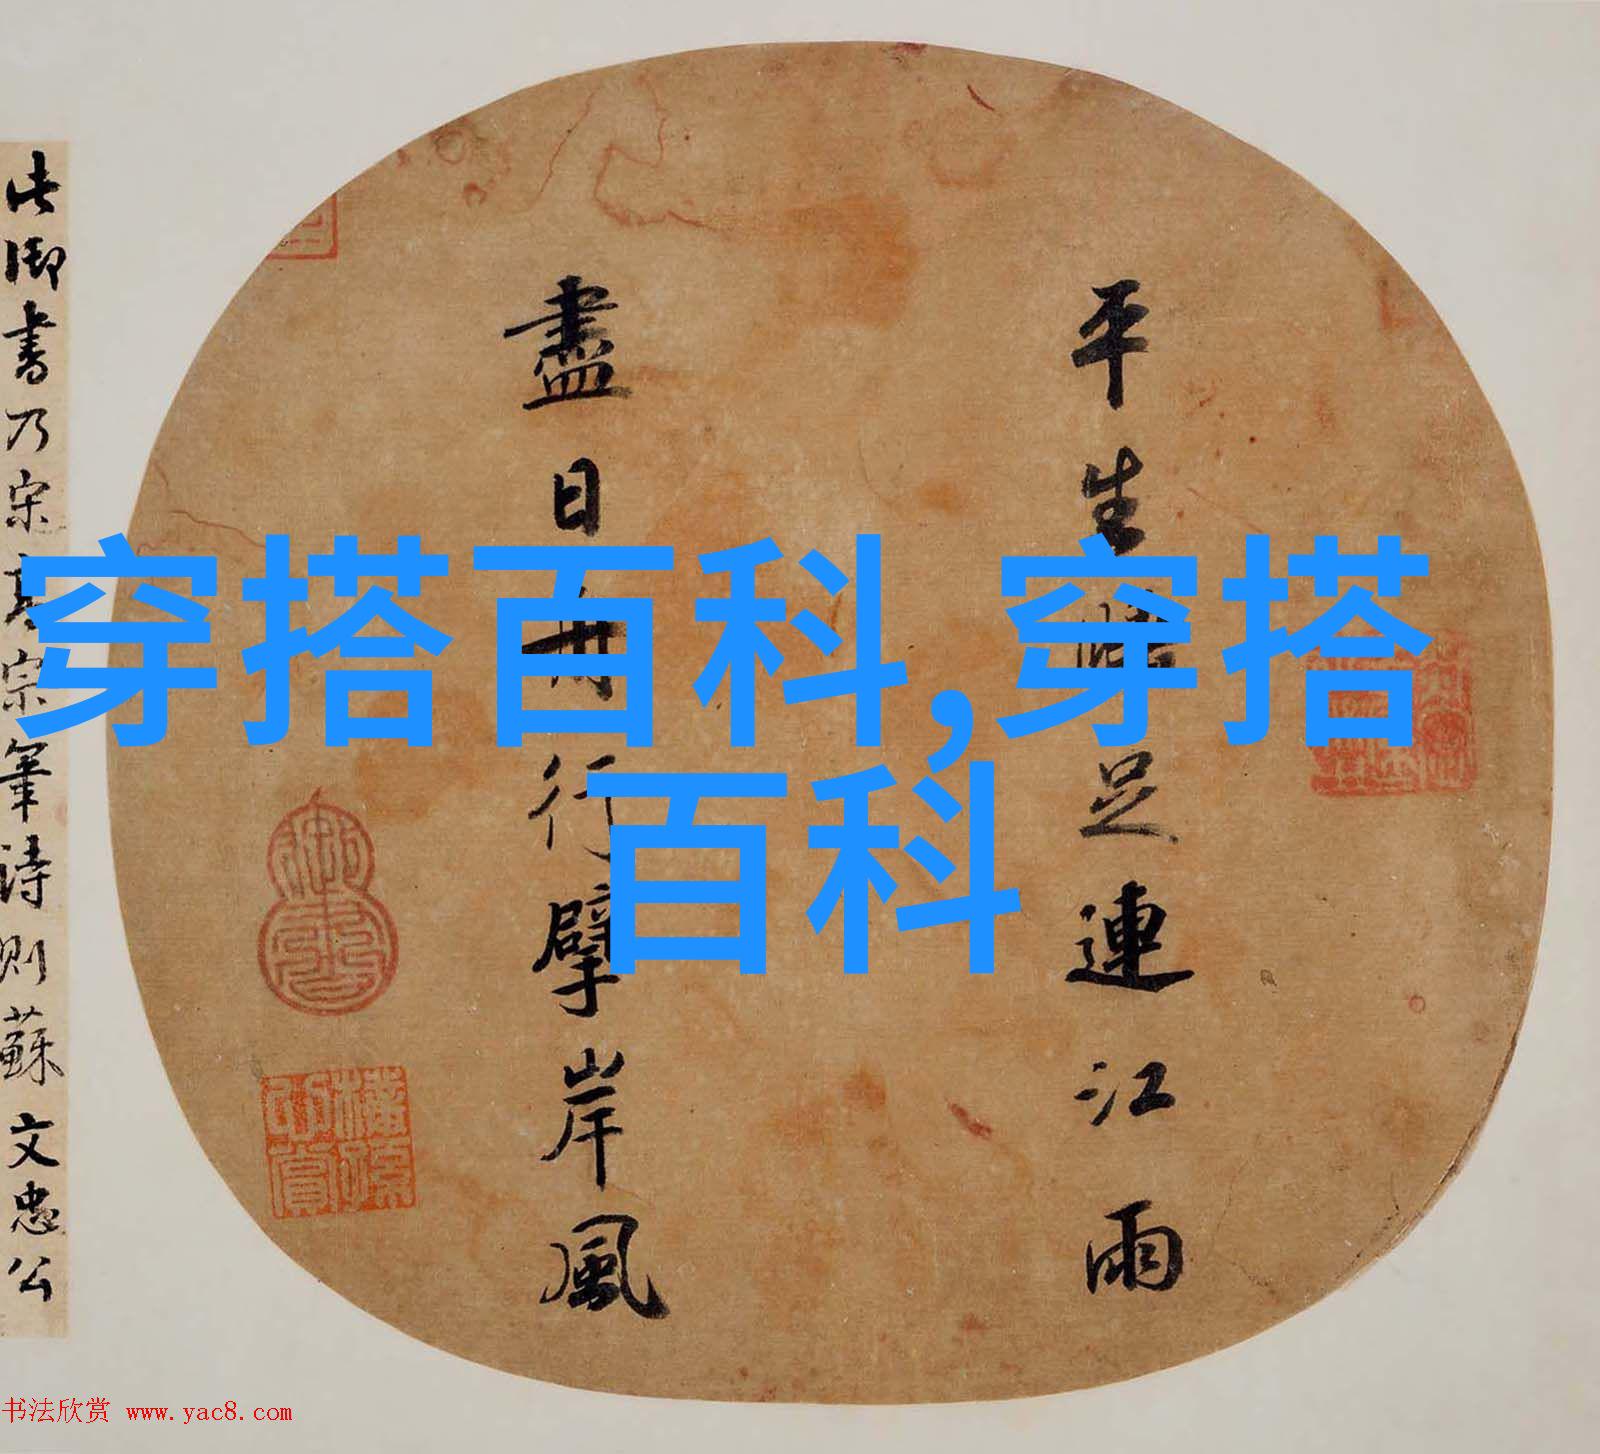 平生睡足連江雨
盡日舟行擘岸風
此御書乃宋高宗筆詩則蘇文忠公
穿搭百科,穿搭
百科
书法欣赏 www.yac8.com